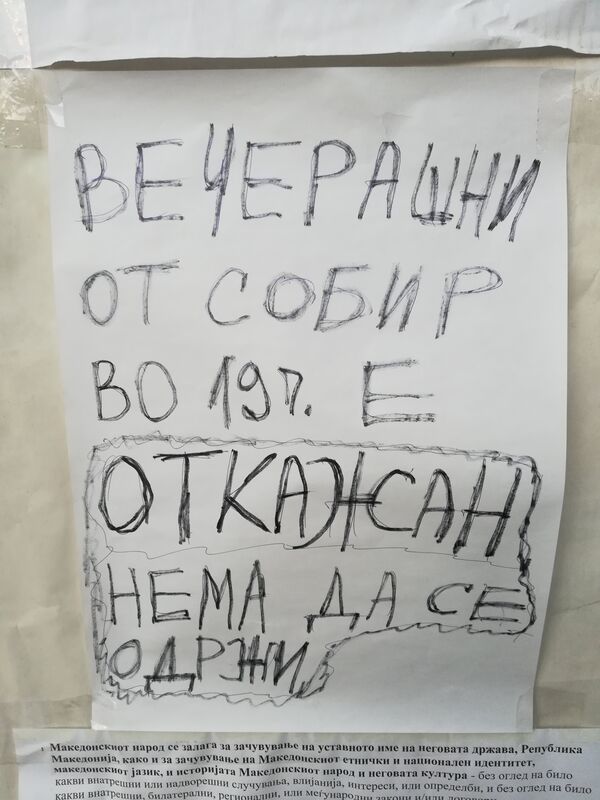 ВЕЧЕРАШНИ
ОТ СОБИР
ВО 19ч. Е
ОТКАЖСАН
НЕМА ДА СЕ
ОДРЖИ
Македонскиот народ се залага за зачувување на уставното име на неговата држава, Република
Македонија, како и за зачувување на Македонскиот етнички и национален идентитет,
македонскиот јазик, и историјата Македонскиот народ и неговата култура - без оглед на било
какви внатрешни или надворешни случувања, влијанија, интереси, или определби, и без оглед на било
какви внатрешни, билатерални, регионални, или меѓународни закони и/или